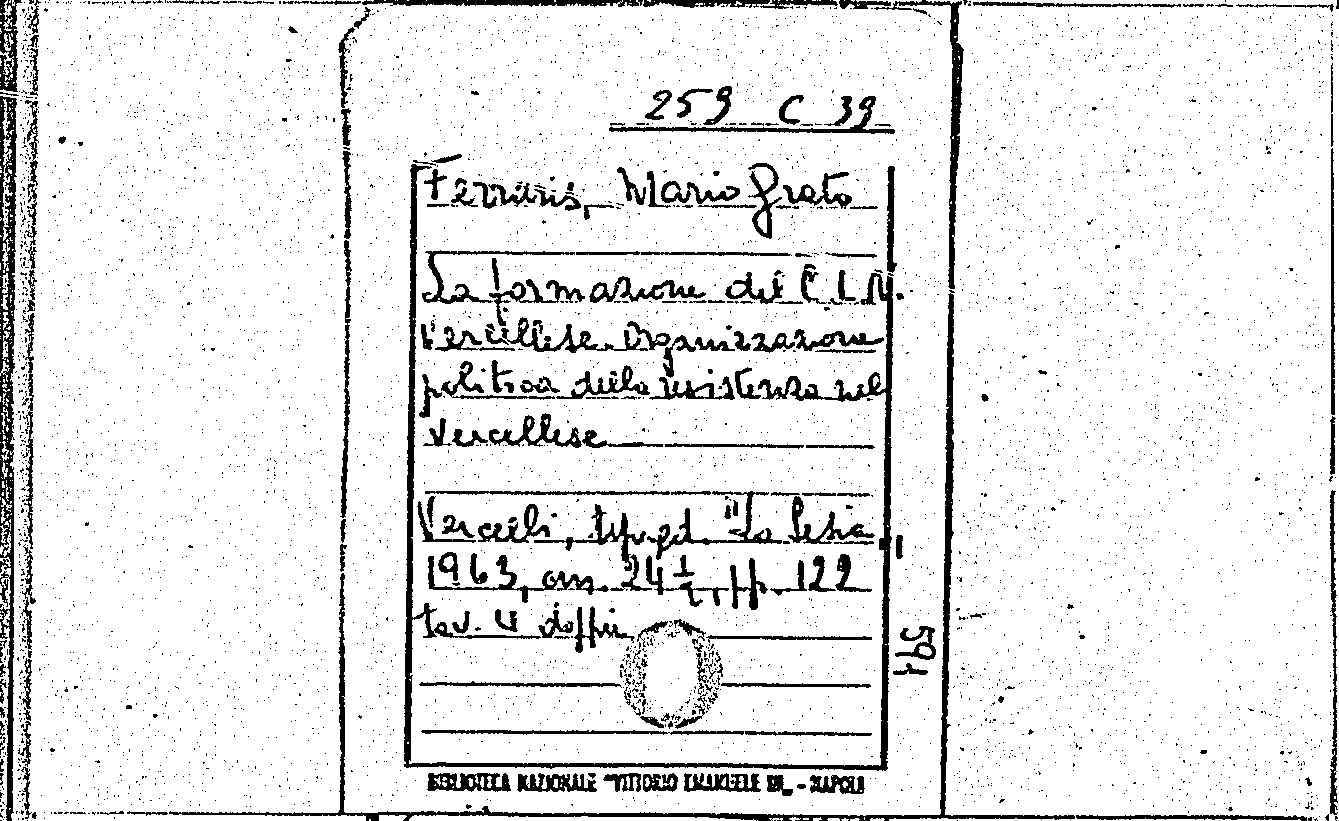 259 C 39
Ferraris, Mario Grato
La formazione del C L N.
Vercellese. Organizzazione
politica della resistenza nel
Vercellese
Vercelli, tip. ed. "La Sesia
1963, cm. 24 1/2, pp. 122
tav. V doppie
591
BIBLIOTECA NAZIONALE "VITTORIO EMANUELE III" - NAPOLI